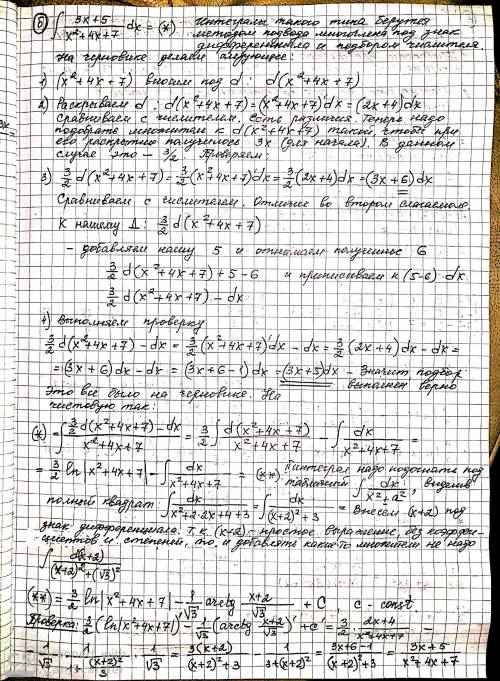 б) ∫ (3x+5)/(x²+4x+7) dx = (*) Интегралы такого типа берутся
методом подвода многочлена под знак
дифференциала и подбором числителя
На черновике делаем следующее:
1) (x²+4x+7) вносим под d: d(x²+4x+7)
2) Раскрываем d: d(x²+4x+7)=(x²+4x+7)'dx=(2x+4)dx
Сравниваем с числителем. Есть различия. Теперь надо
подобрать множитель к d(x²+4x+7) такой, чтобы при
его раскрытии получилось 3x (для начала). В данном
случае это – 3/2. Проверяем:
3) 3/2 d(x²+4x+7)=3/2(x²+4x+7)'dx=3/2(2x+4)dx=(3x+6)dx
Сравниваем с числителем. Отличие во втором слагаемом.
К нашему Д: 3/2 d(x²+4x+7)
– добавляем нашу 5 и отнимаем полученные 6
3/2 d(x²+4x+7)+5-6 и приписываем к (5-6) dx
3/2 d(x²+4x+7)-dx
4) Выполняем проверку
3/2 d(x²+4x+7)-dx=3/2(x²+4x+7)'dx-dx=3/2(2x+4)dx-dx=
=(3x+6)dx-dx=(3x+6-1)dx=(3x+5)dx – Значит подбор
выполнен верно
Это все было на черновике. На
чистовую так:
(*)=∫ (3/2 d(x²+4x+7)-dx)/(x²+4x+7) = 3/2 ∫ d(x²+4x+7)/(x²+4x+7) - ∫ dx/(x²+4x+7) =
=3/2 ln|x²+4x+7| - ∫ dx/(x²+4x+7) = (**) интеграл надо подогнать под
табличный ∫ dx/(x²+a²), выделив
полный квадрат ∫ dx/(x²+2·2x+4+3) = ∫ dx/((x+2)²+3) = Внесем (x+2) под
знак дифференциала. Т.к. (x+2) – простое выражение, без коэффи-
циентов и степеней, то и добавлять какие-то множители не надо
∫ d(x+2)/((x+2)²+(√3)²)
(**)=3/2 ln|x²+4x+7| - 1/√3 arctg (x+2)/√3 + C, c - const
Проверка: 3/2 (ln|x²+4x+7|)' - 1/√3 (arctg (x+2)/√3)' + c' = 3/2 · (2x+4)/(x²+4x+7) -
- 1/√3 · 1/(1+(x+2)²/3) · 1/√3 = 3(x+2)/((x+2)²+3) - 1/(3+(x+2)²) = (3x+6-1)/((x+2)²+3) = (3x+5)/(x²+4x+7)